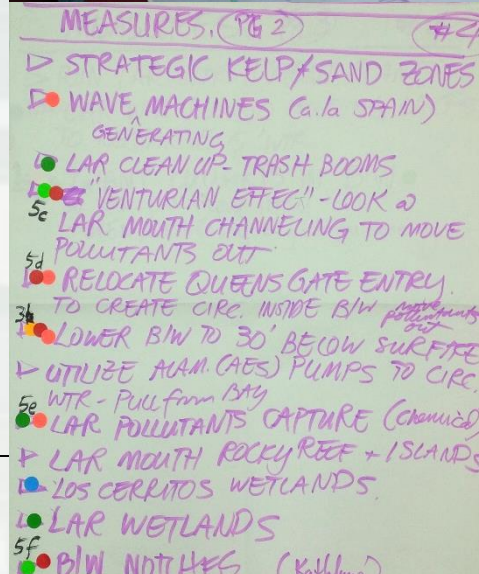 MEASURES. PG 2 #4
STRATEGIC KELP/SAND ZONES
WAVE MACHINES (a.la SPAIN)
GENERATING
LAR CLEAN UP - TRASH BOOMS
"VENTURIAN EFFEC" - LOOK @
5c LAR MOUTH CHANNELING TO MOVE
POLLUTANTS OUT
5d
RELOCATE QUEENS GATE ENTRY
TO CREATE CIRC. INSIDE B/W move pollutants out
3b
LOWER B/W TO 30' BELOW SURFACE
UTILIZE ALAM. (AES) PUMPS TO CIRC.
WTR - PULL from BAY
5e
LAR POLLUTANTS CAPTURE (chemical)
LAR MOUTH ROCKY REEF + ISLANDS
LOS CERRITOS WETLANDS.
LAR WETLANDS
5f
B/W NOTCHES